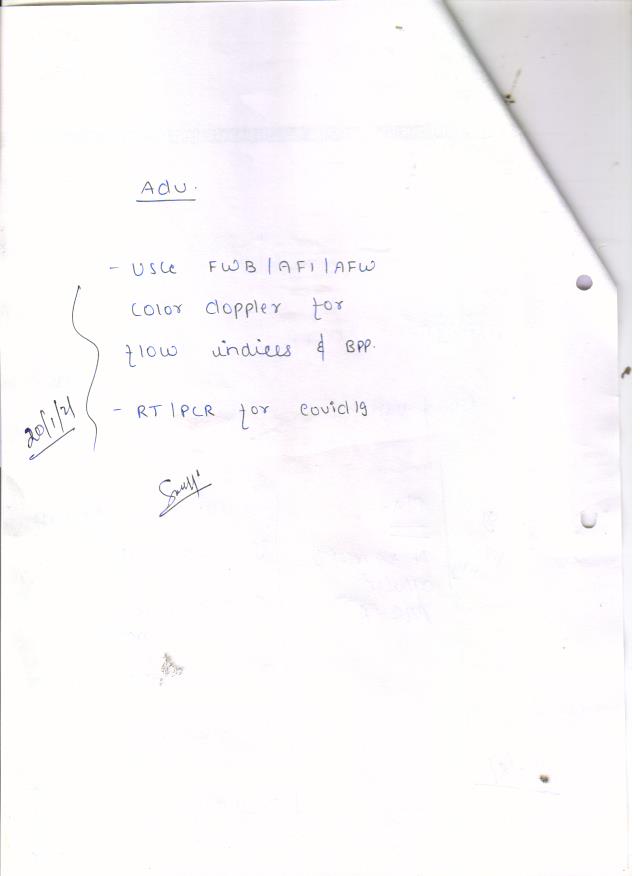 Adv.
- USG FWB/AFI/AFW
color doppler for
flow indices & BPP.
- RT/PCR for covid 19
20/1/21